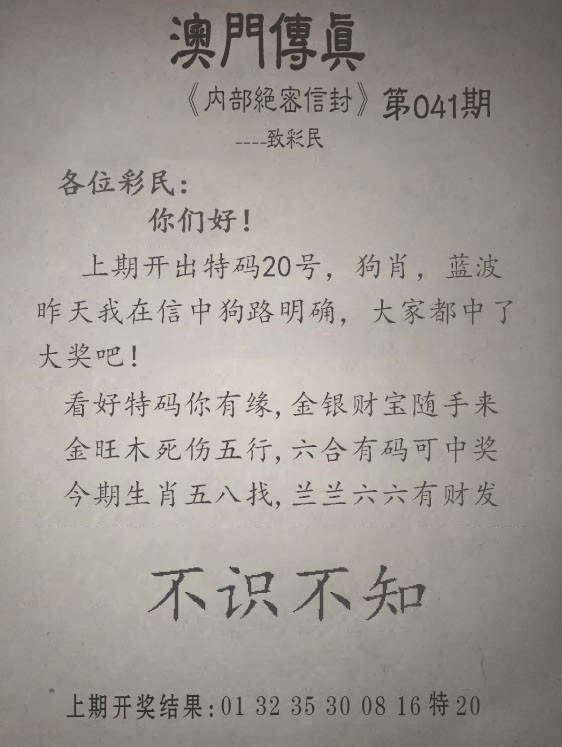 澳門傳眞
《内部絕密信封》第041期
----致彩民
各位彩民:
你们好!
上期开出特码20号，狗肖，蓝波
昨天我在信中狗路明确，大家都中了
大奖吧!
看好特码你有缘,金银财宝随手来
金旺木死伤五行,六合有码可中奖
今期生肖五八找,兰兰六六有财发
不识不知
上期开奖结果:01 32 35 30 08 16特20